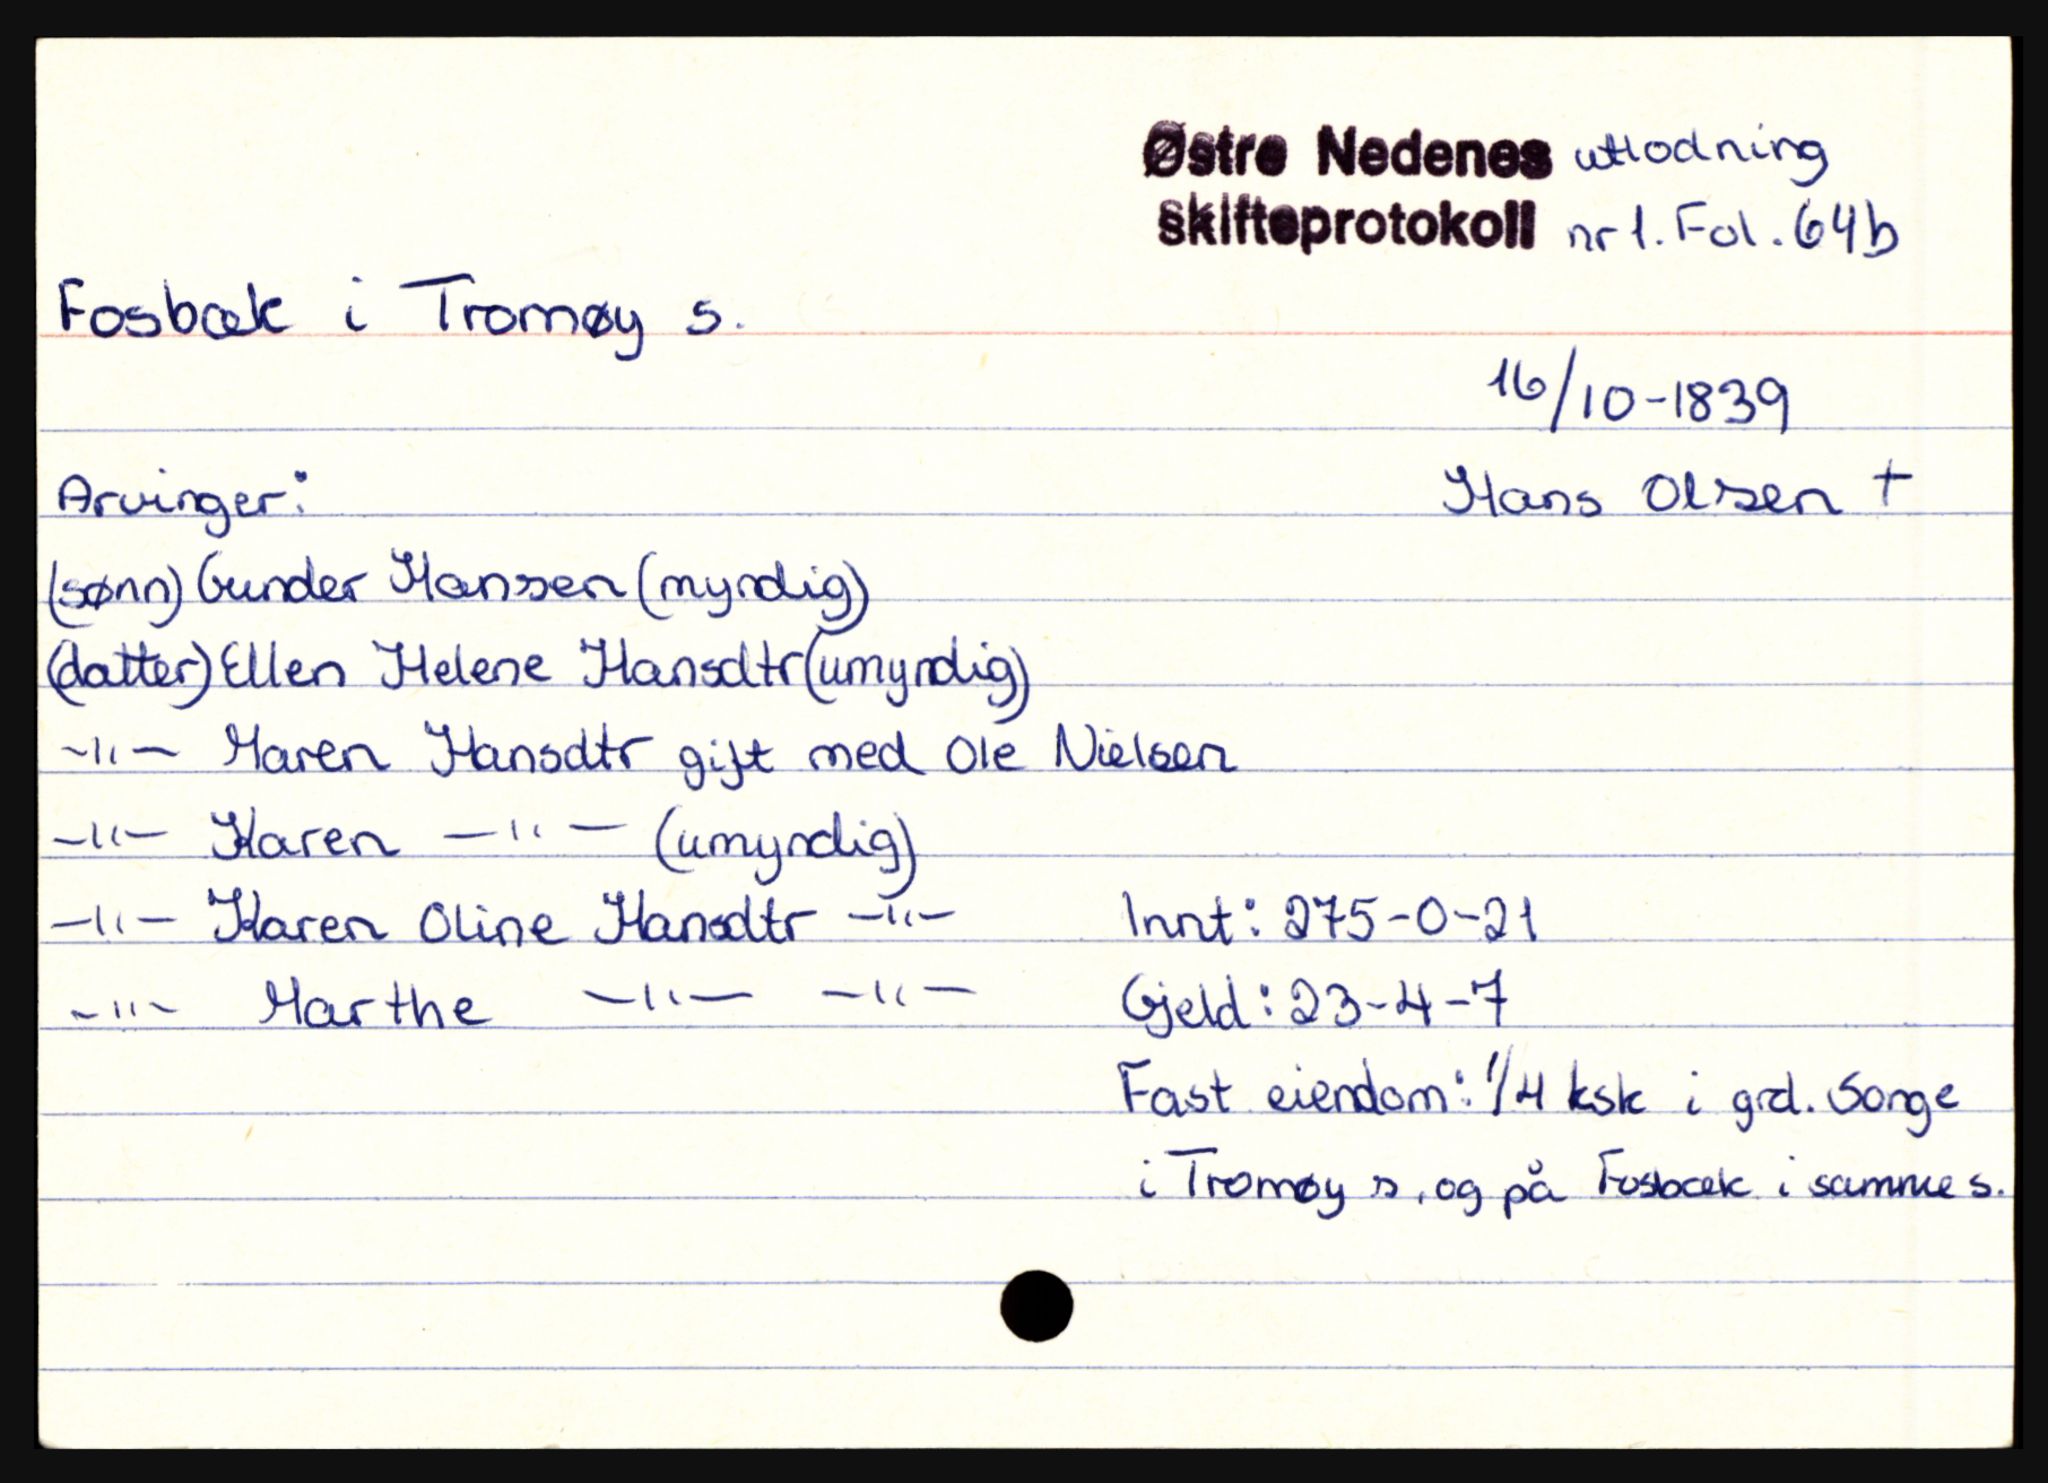 Østre Nedenes utlodning
skifteprotokoll nr 1. Fol. 64b
Fosbæk i Tromøy s.
16/10-1839
Arvinger:
Hans Olsen +
(sønn) Gunder Hansen (myndig)
(datter) Ellen Helene Hansdtr (umyndig)
-"- Maren Hansdtr gift med Ole Nielsen
-"- Karen -"- (umyndig)
-"- Karen Oline Hansdtr -"-
Innt: 275-0-21
-"- Marthe -"- -"-
Gjeld: 23-4-7
Fast eiendom: 1/4 ksk i grd. Songe
i Tromøy s. og på Fosbæk i samme s.